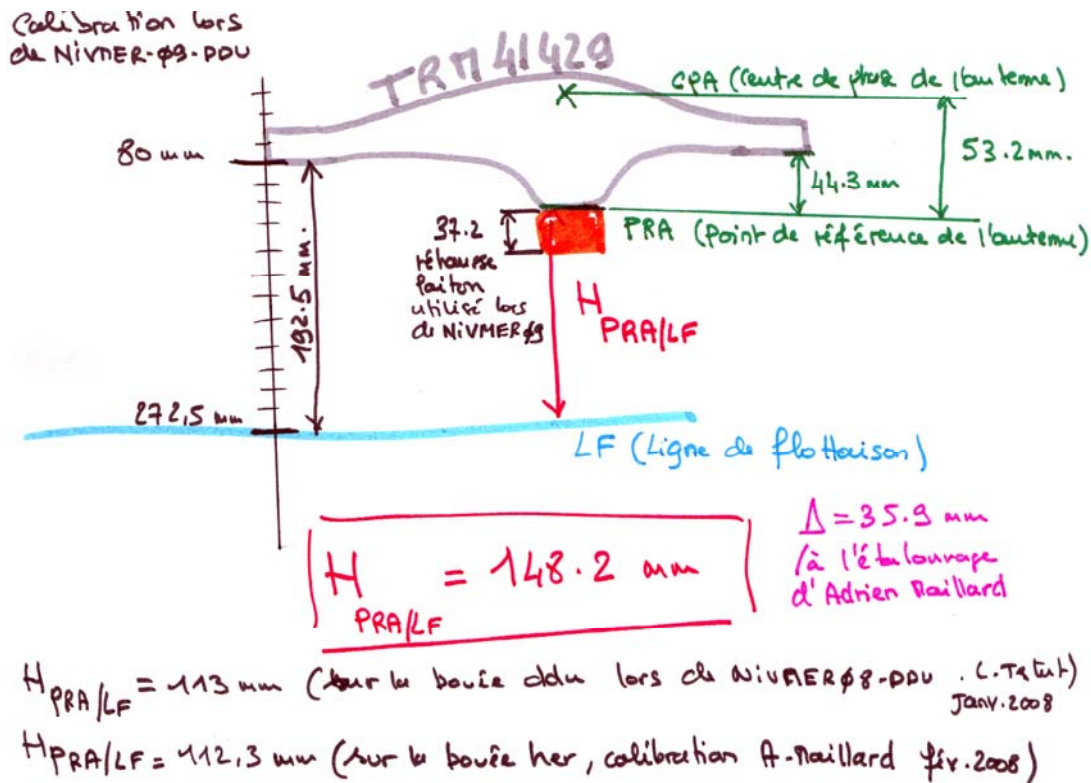 Calibration lors
de NIVMER-ø9-DDU
TRM 41429
CPA (Centre de phase de l'antenne)
80 mm
53.2 mm.
44.3 mm
PRA (Point de référence de l'antenne)
37.2
réhausse
laiton
utilisé lors
de NIVMERø9
192.5 mm.
H PRA/LF
272,5 mm
LF (Ligne de flottaison)
H PRA/LF = 148.2 mm
Δ = 35.9 mm
/à l'étalonnage
d'Adrien Maillard
H PRA/LF = 113 mm (sur la bouée ddu lors de NIVMERø8-DDU . C. 
Janv. 2008
H PRA/LF = 112,3 mm (sur la bouée her, calibration A. Maillard fév. 2008)